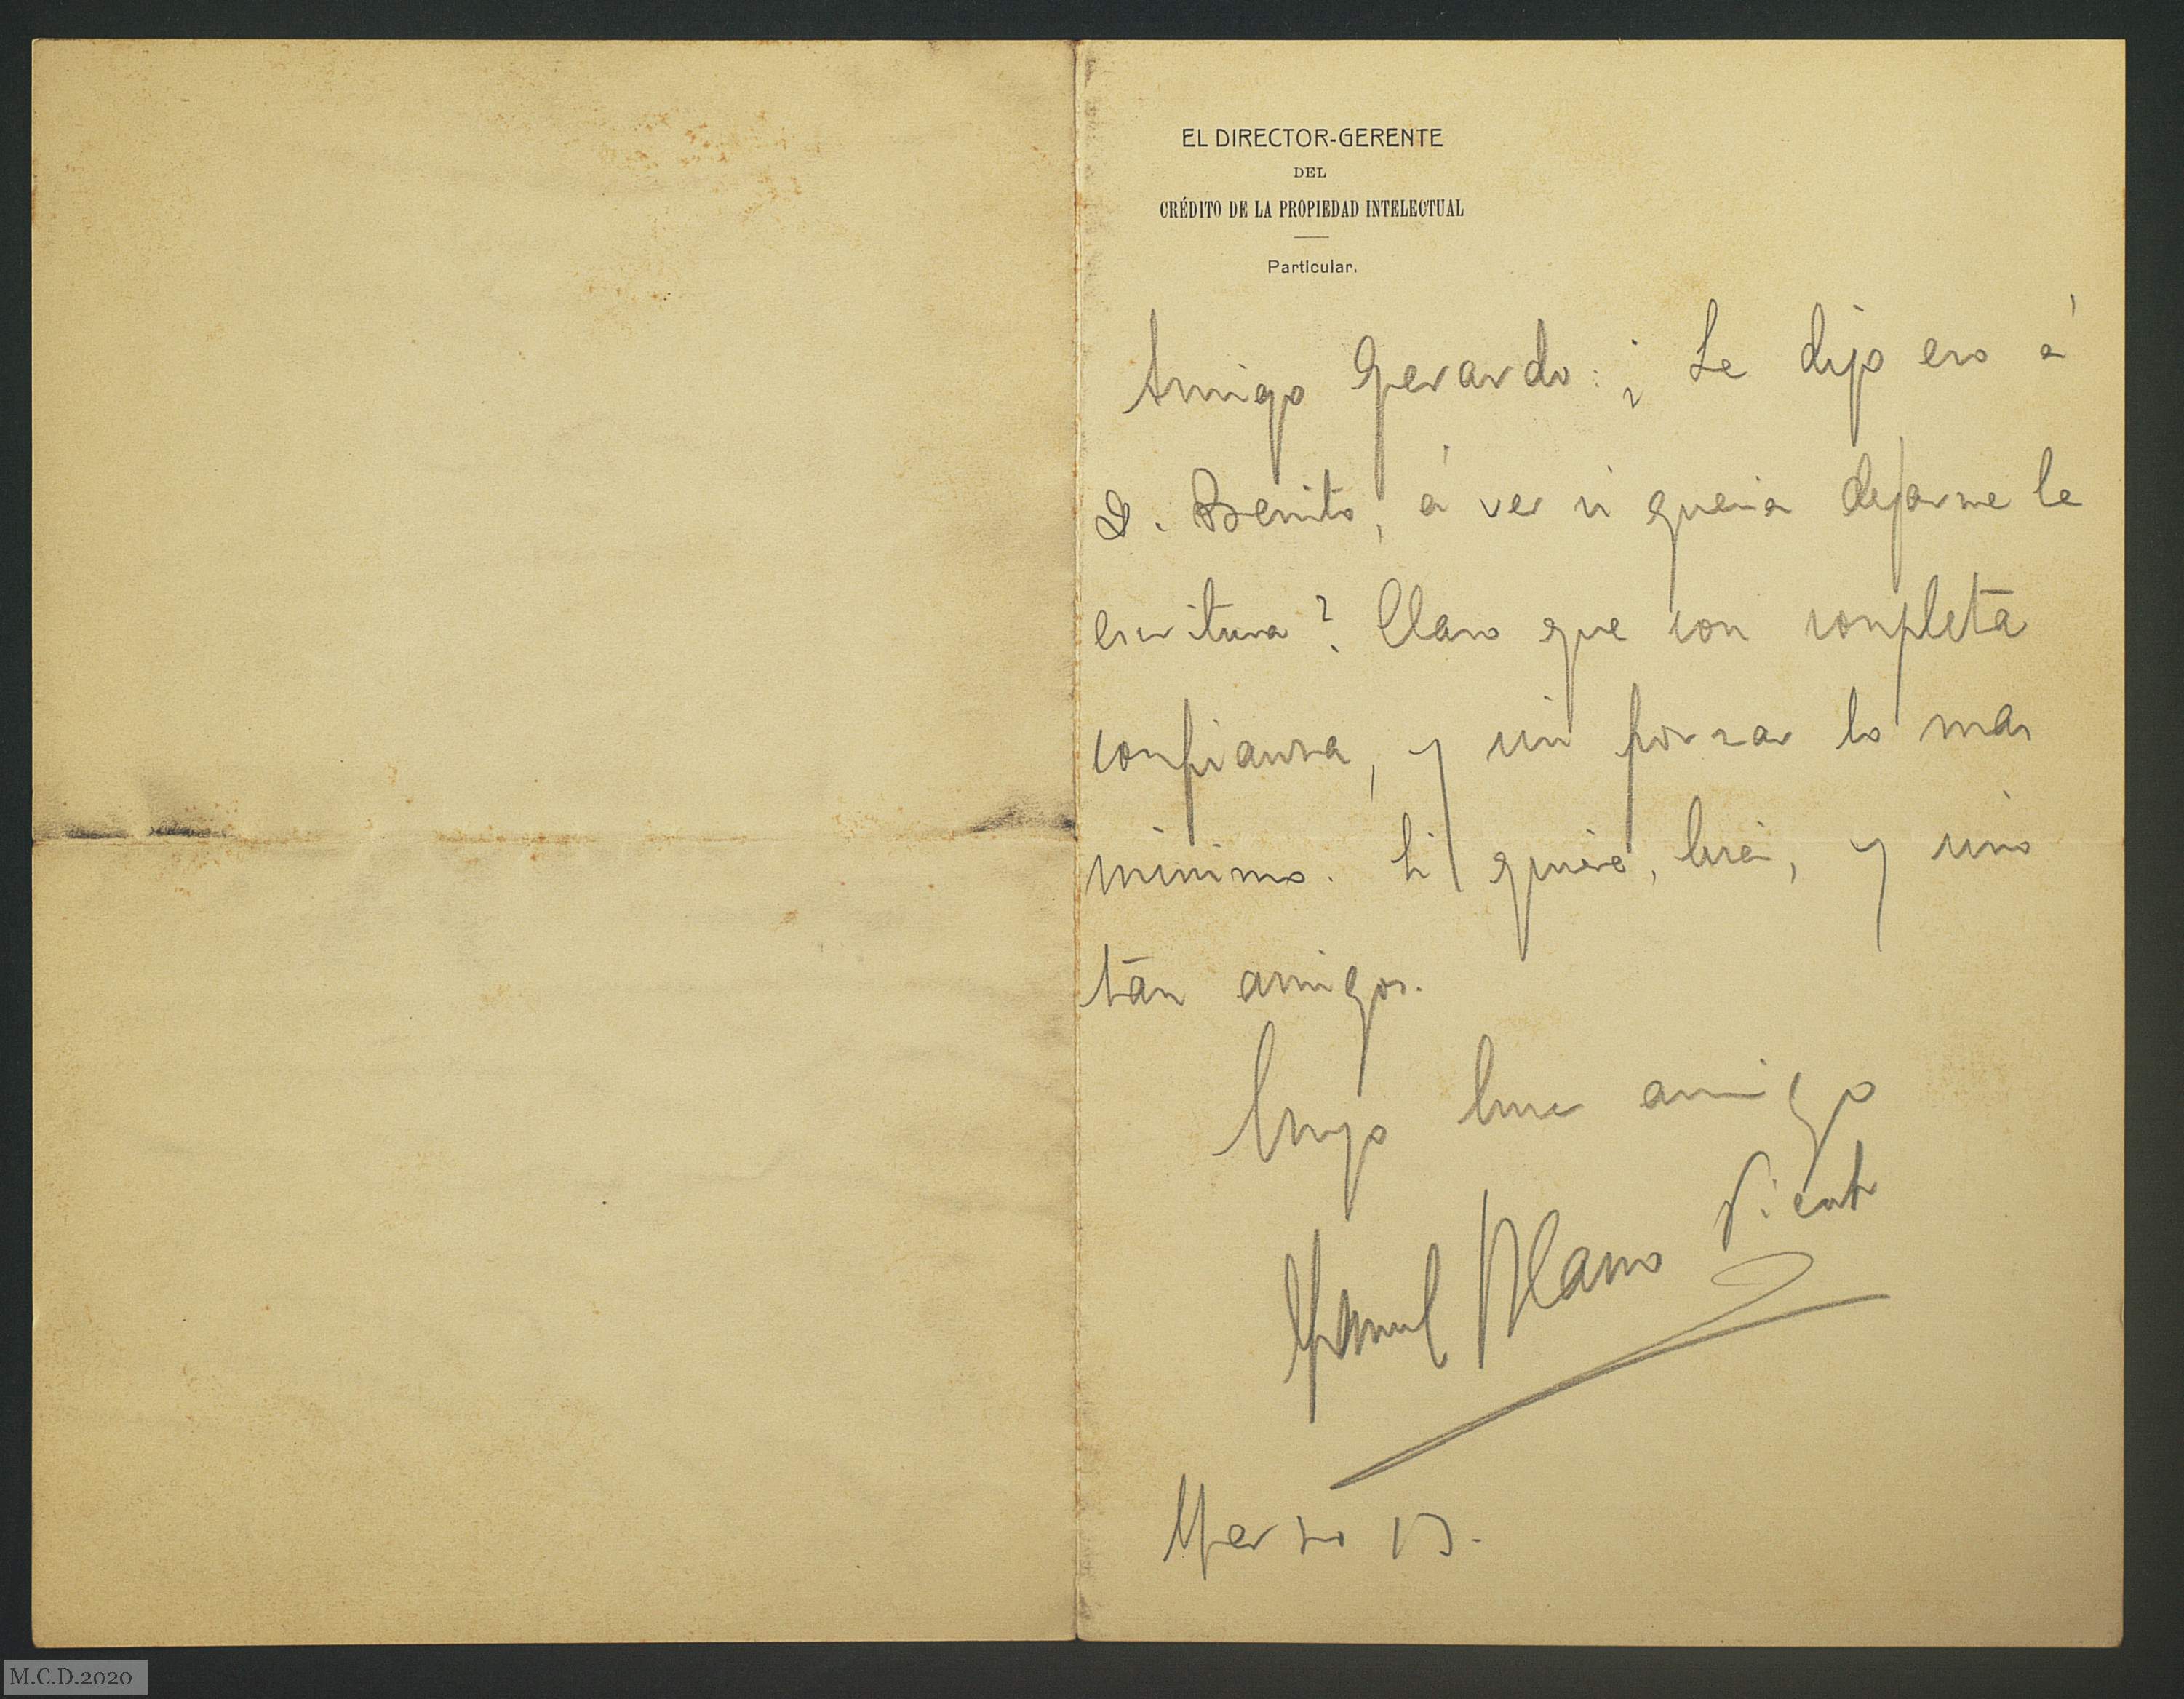 EL DIRECTOR-GERENTE
DEL
CRÉDITO DE LA PROPIEDAD INTELECTUAL
Particular.
Amigo Gerardo: ¿Le dijo eso á
D. Benito, á ver si queria dejarme la
escritura? Claro que con completa
confianza, y sin forzar lo mas
minimo. Si quiere, bien, y sino
tan amigos.
Suyo buen amigo
Manuel
Marzo 13.
M.C.D.2020